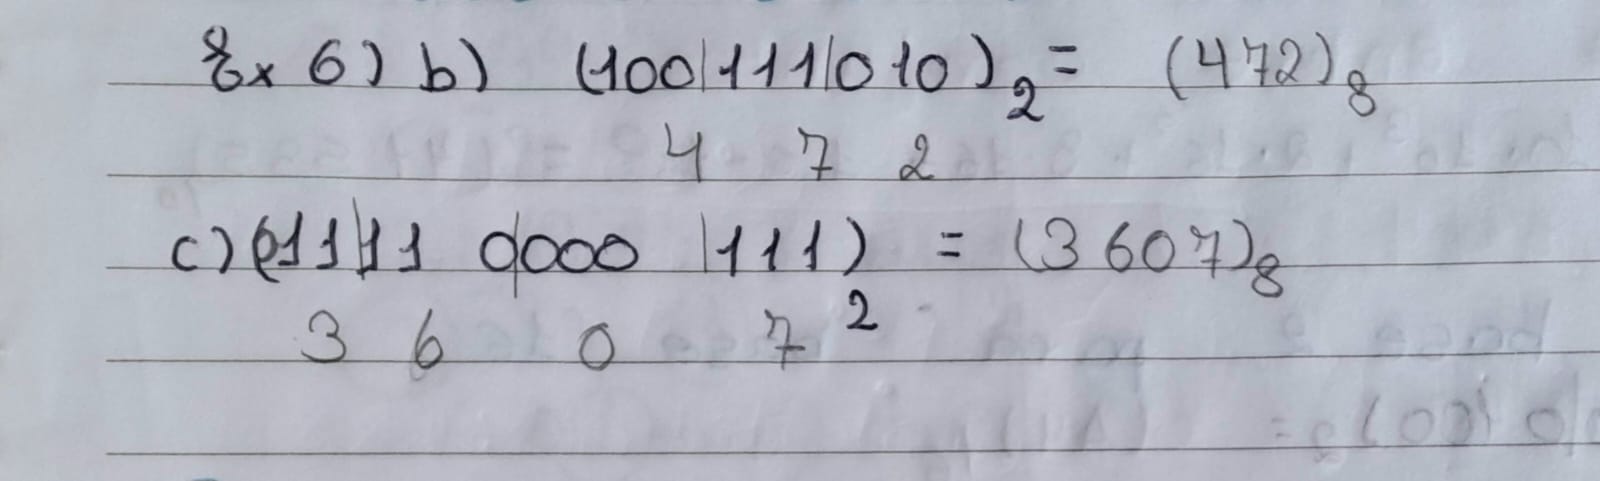 Ex 6) b) (100|111|010)₂ = (472)₈
4 7 2
c) (011|11 0|000 |111)₂ = (3607)₈
3 6 0 7